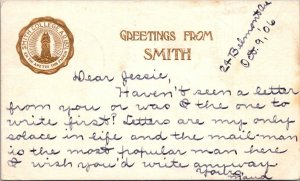 SMITH COLLEGE
GREETINGS FROM
SMITH
24 Belmont Ave
Oct. 9, '06
Dear Jessie,
Haven't seen a letter
from you or was I the one to
write first? Letters are my only
solace in life and the mail man
is the most popular man here
I wish you'd write anyway
Maud